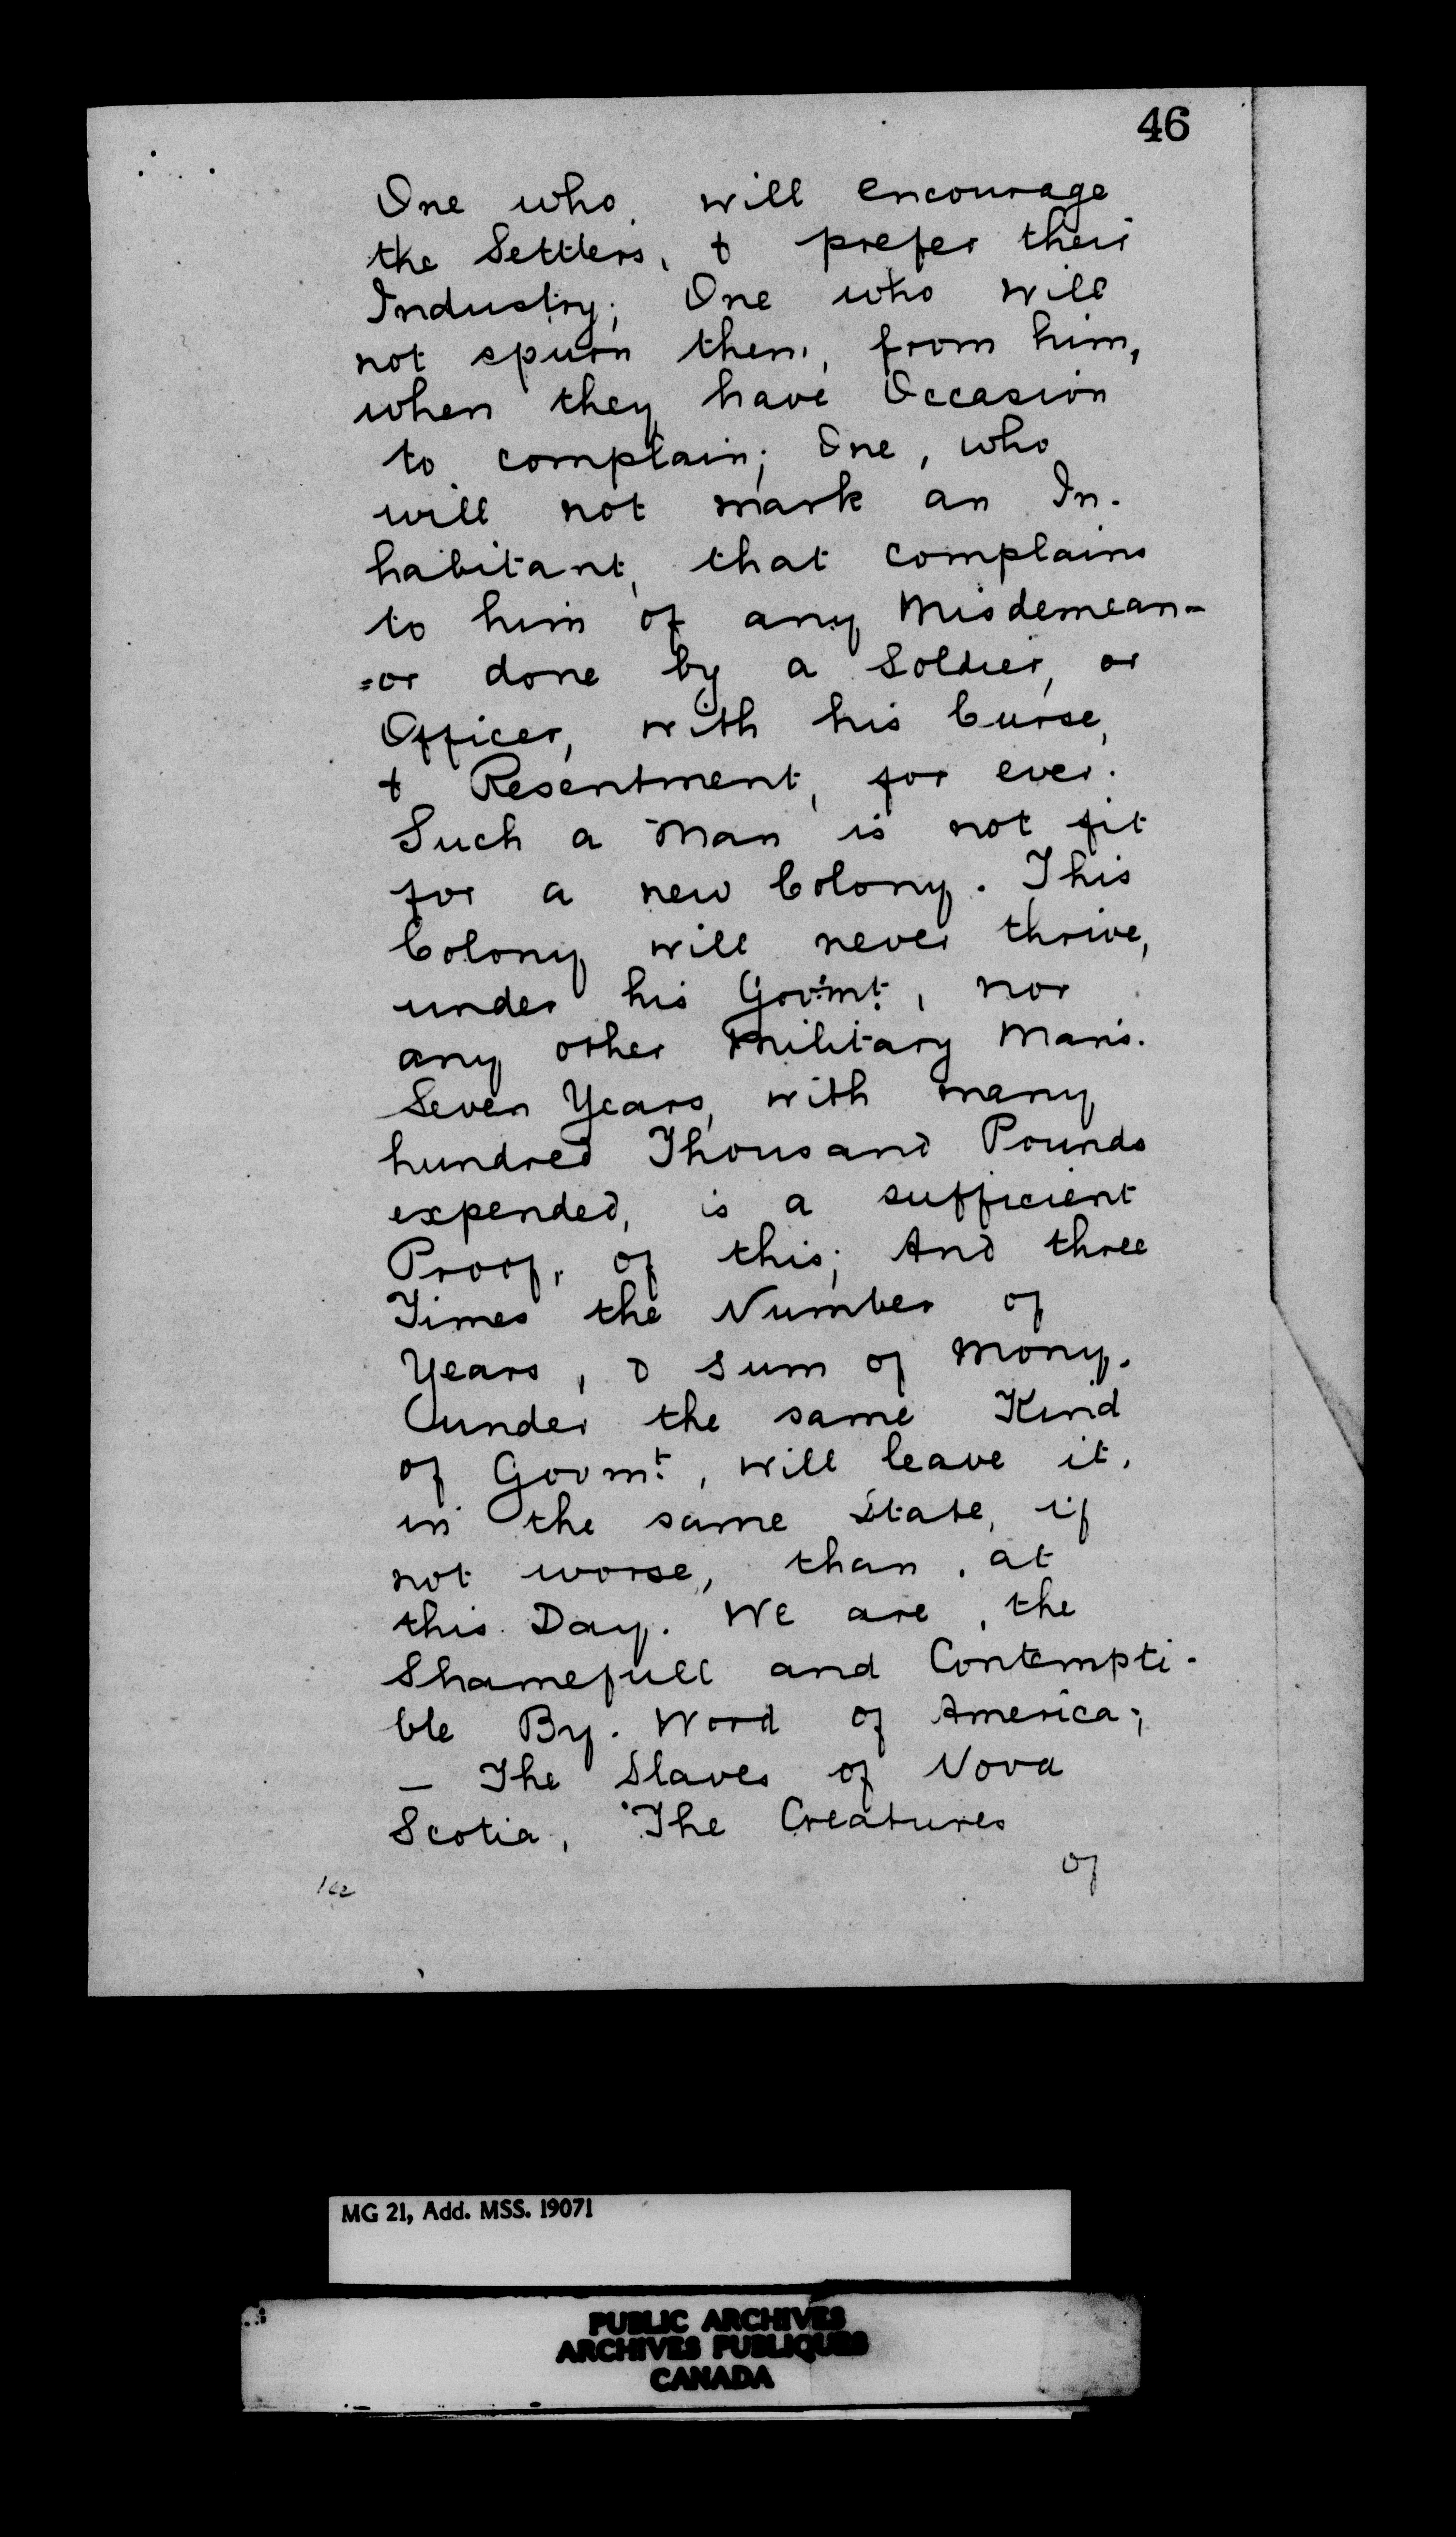 46
One who will encourage
the Settlers, & prefer their
Industry; One who will
not spurn them, from him,
when they have Occasion
to complain; One, who
will not mark an In-
habitant, that complains
to him of any Misdemean-
=or done by a Soldier, or
Officer, with his Curse,
& Resentment, for ever.
Such a Man is not fit
for a new Colony. This
Colony will never thrive,
under his Govmt, nor
any other Military Man's.
Seven Years, with many
hundred Thousand Pounds
expended, is a sufficient
Proof, of this; And three
Times the Number of
Years, & sum of Mony.
under the same Kind
of Govmt, will leave it,
in the same State, if
not worse, than, at
this Day. We are, the
Shamefull and Contempti-
ble By-Word of America;
— The Slaves of Nova
Scotia, The Creatures
of
MG 21, Add. MSS. 19071
PUBLIC ARCHIVES
ARCHIVES PUBLIQUES
CANADA